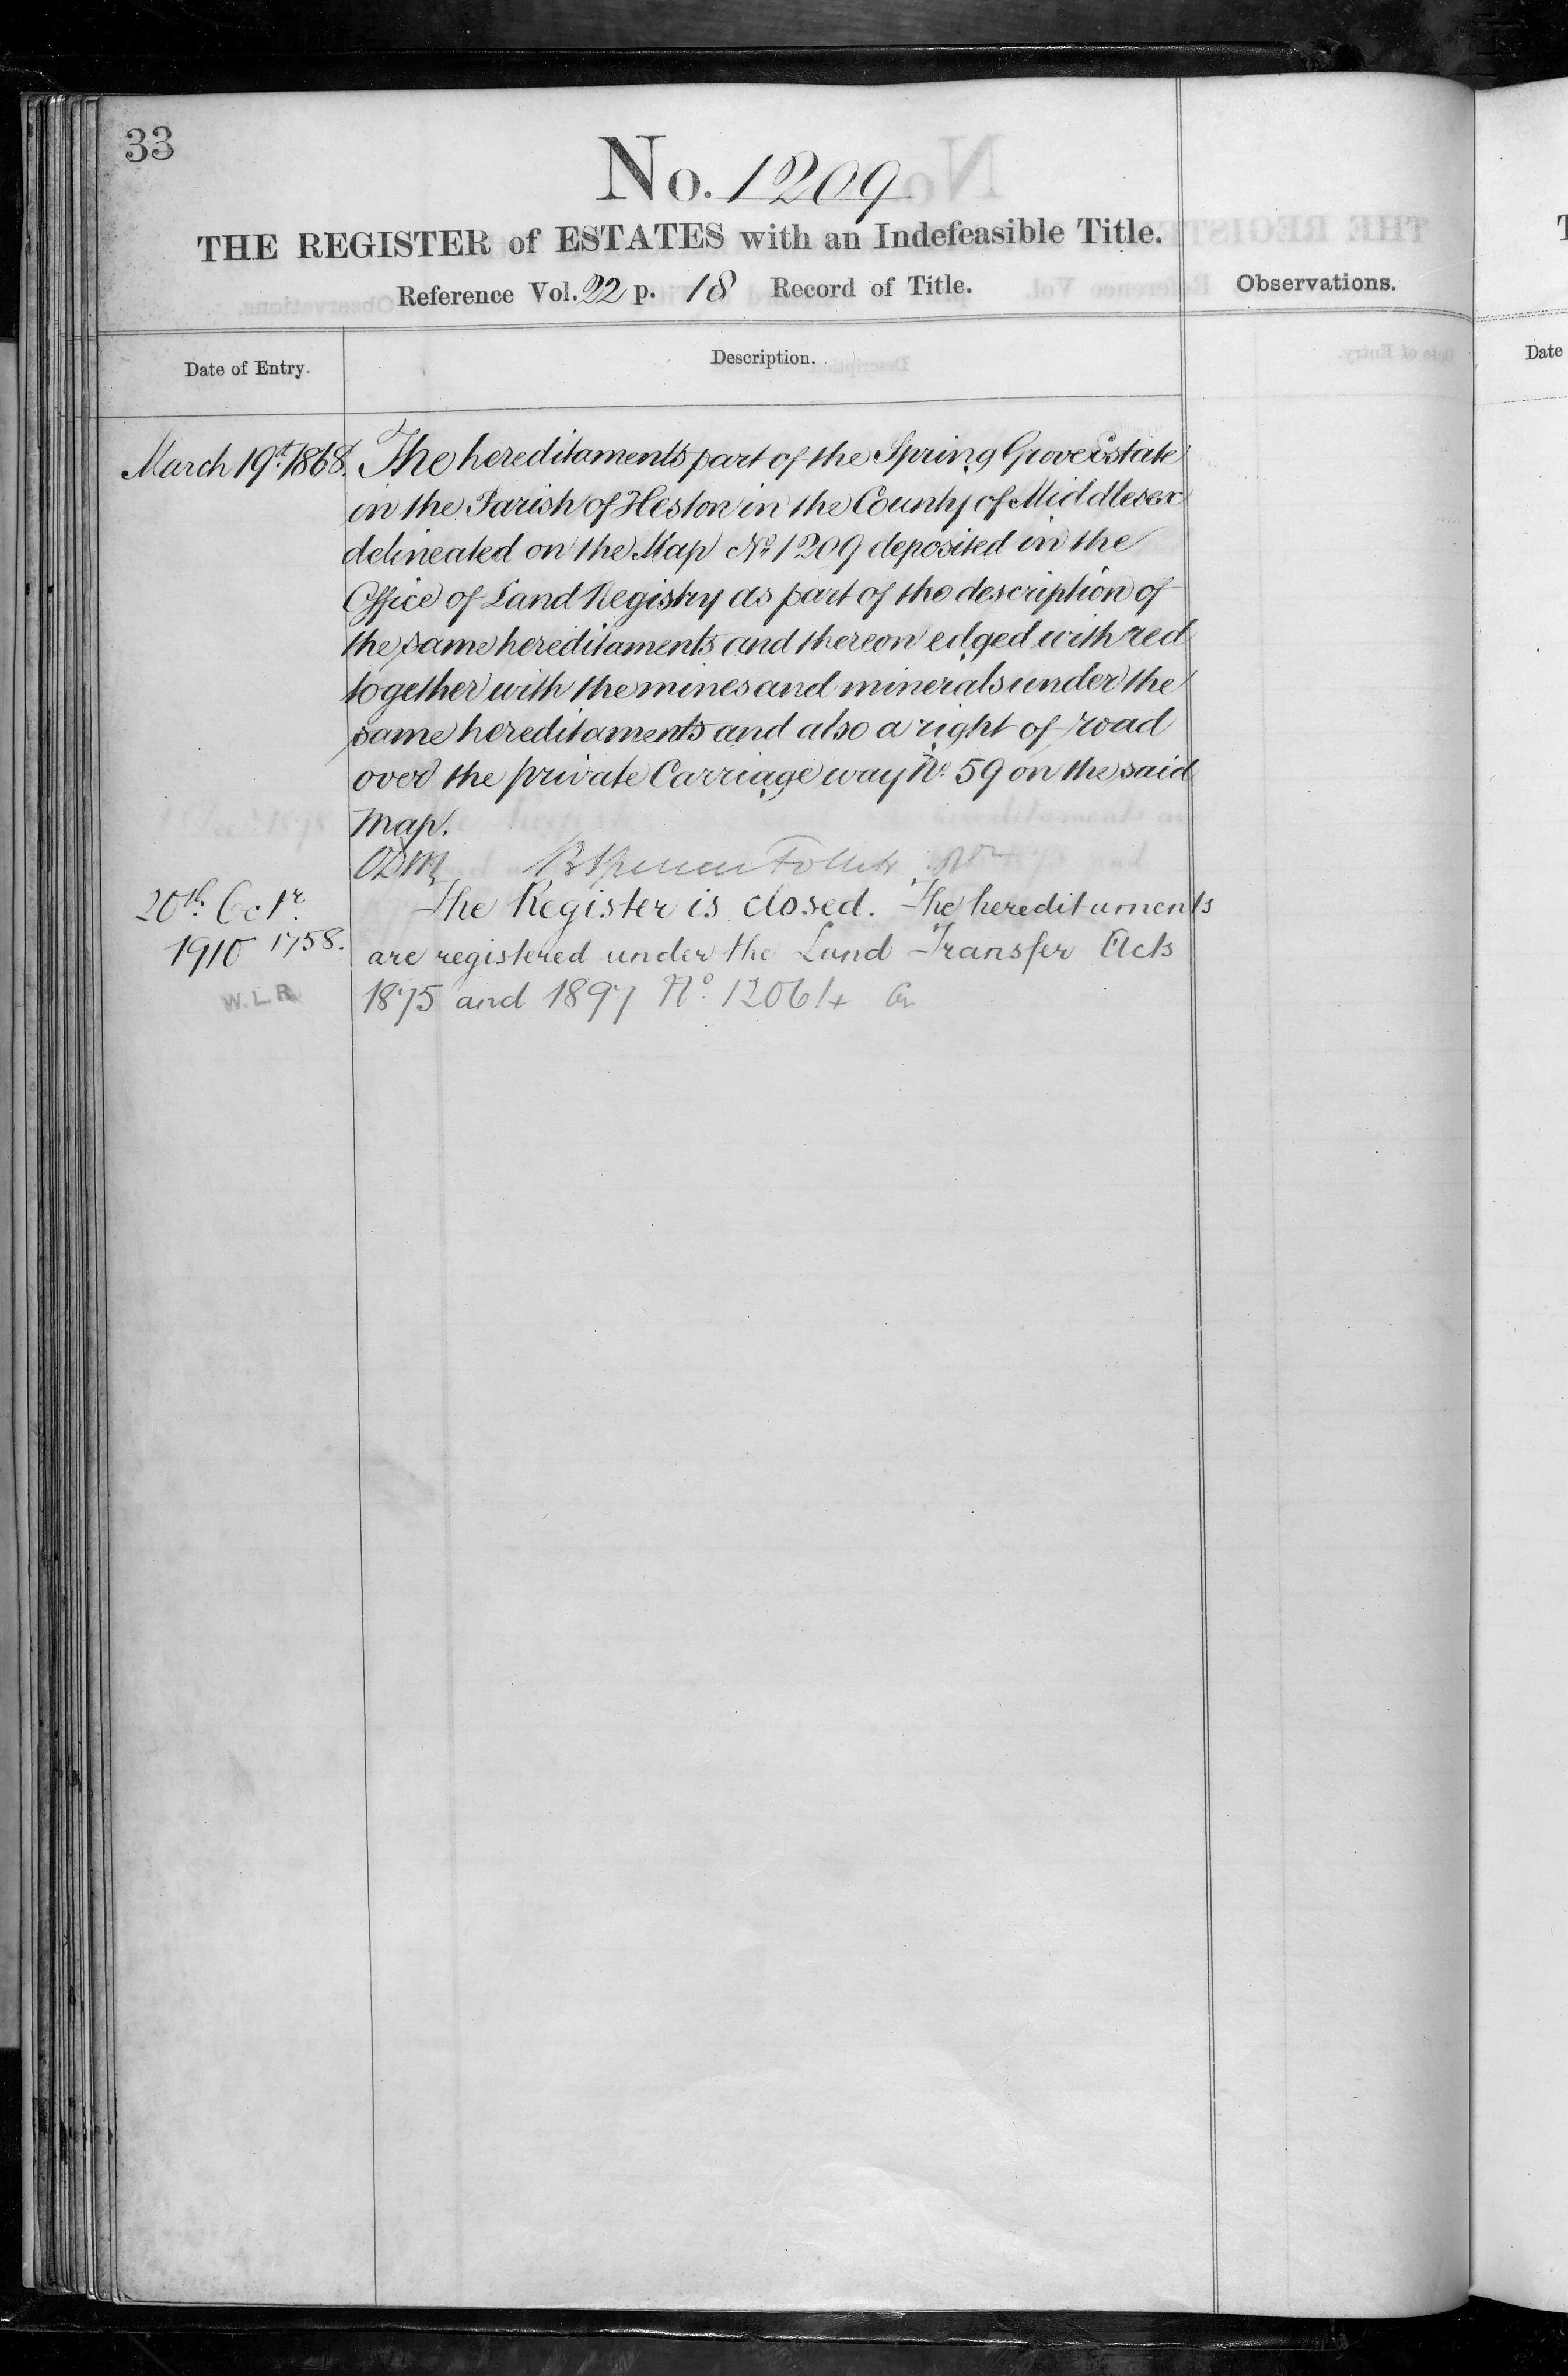 33
No. 1209
THE REGISTER of ESTATES with an Indefeasible Title.
Reference Vol. 22 p. 18 Record of Title.
Observations.
Date of Entry.
Description.
March 19th 1868. The hereditaments part of the Spring Grove Estate
in the Parish of Heston in the County of Middlesex
delineated on the Map No. 1209 deposited in the
Office of Land Registry as part of the description of
the same hereditaments and thereon edged with red
together with the mines and minerals under the
same hereditaments and also a right of road
over the private Carriage way No. 59 on the said
Map.
20th Octr. The Register is closed. The hereditaments
1910 1758. are registered under the Land Transfer Acts
W.L.R. 1875 and 1897 No. 
Date